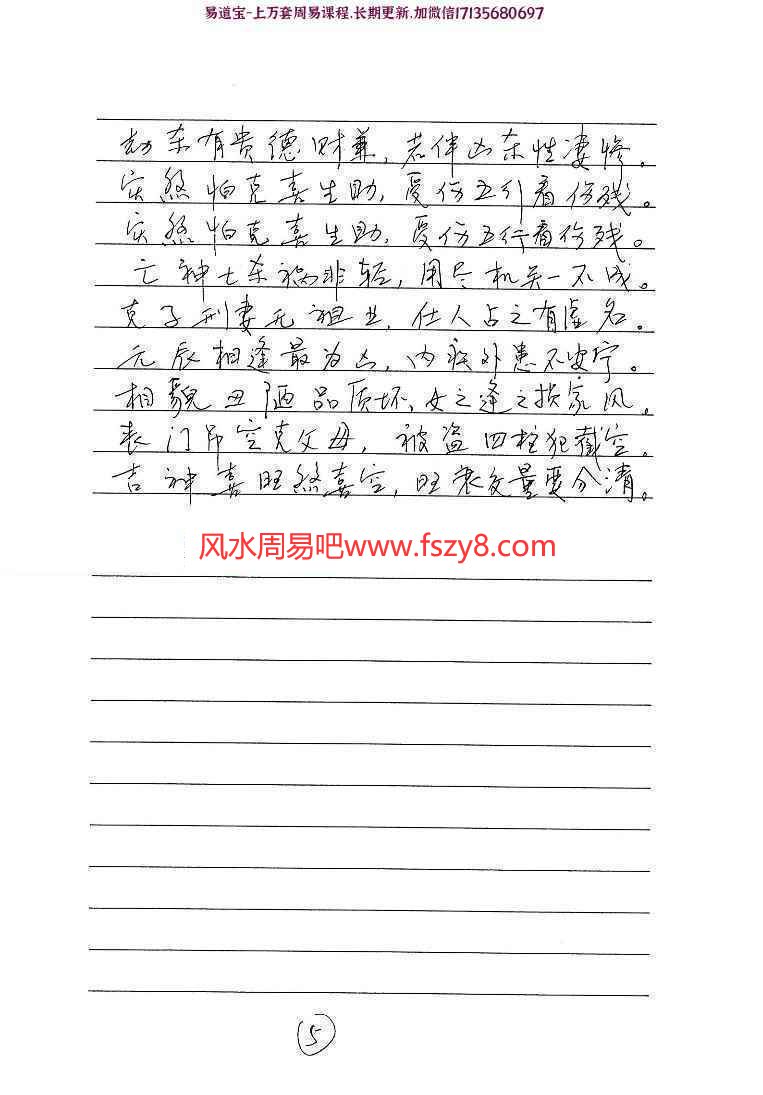 易道宝-上万套周易课程.长期更新.加微信17135680697
劫杀有贵德财兼，若伴凶杀性凄惨。
灾煞怕克喜生助，受伤五引看伤残。
灾煞怕克喜生助，受伤五行看伤残。
亡神七杀祸非轻，用尽机关一不成。
克子刑妻无祖业，仕人占之有虚名。
元辰相逢最为凶，内疾外患不安宁。
相貌丑陋品质坏，女之逢之损家风。
丧门吊空克父母，被盗四柱犯截空。
吉神喜旺煞喜空，旺衰女量要分清。
风水周易吧www.fszy8.com
5